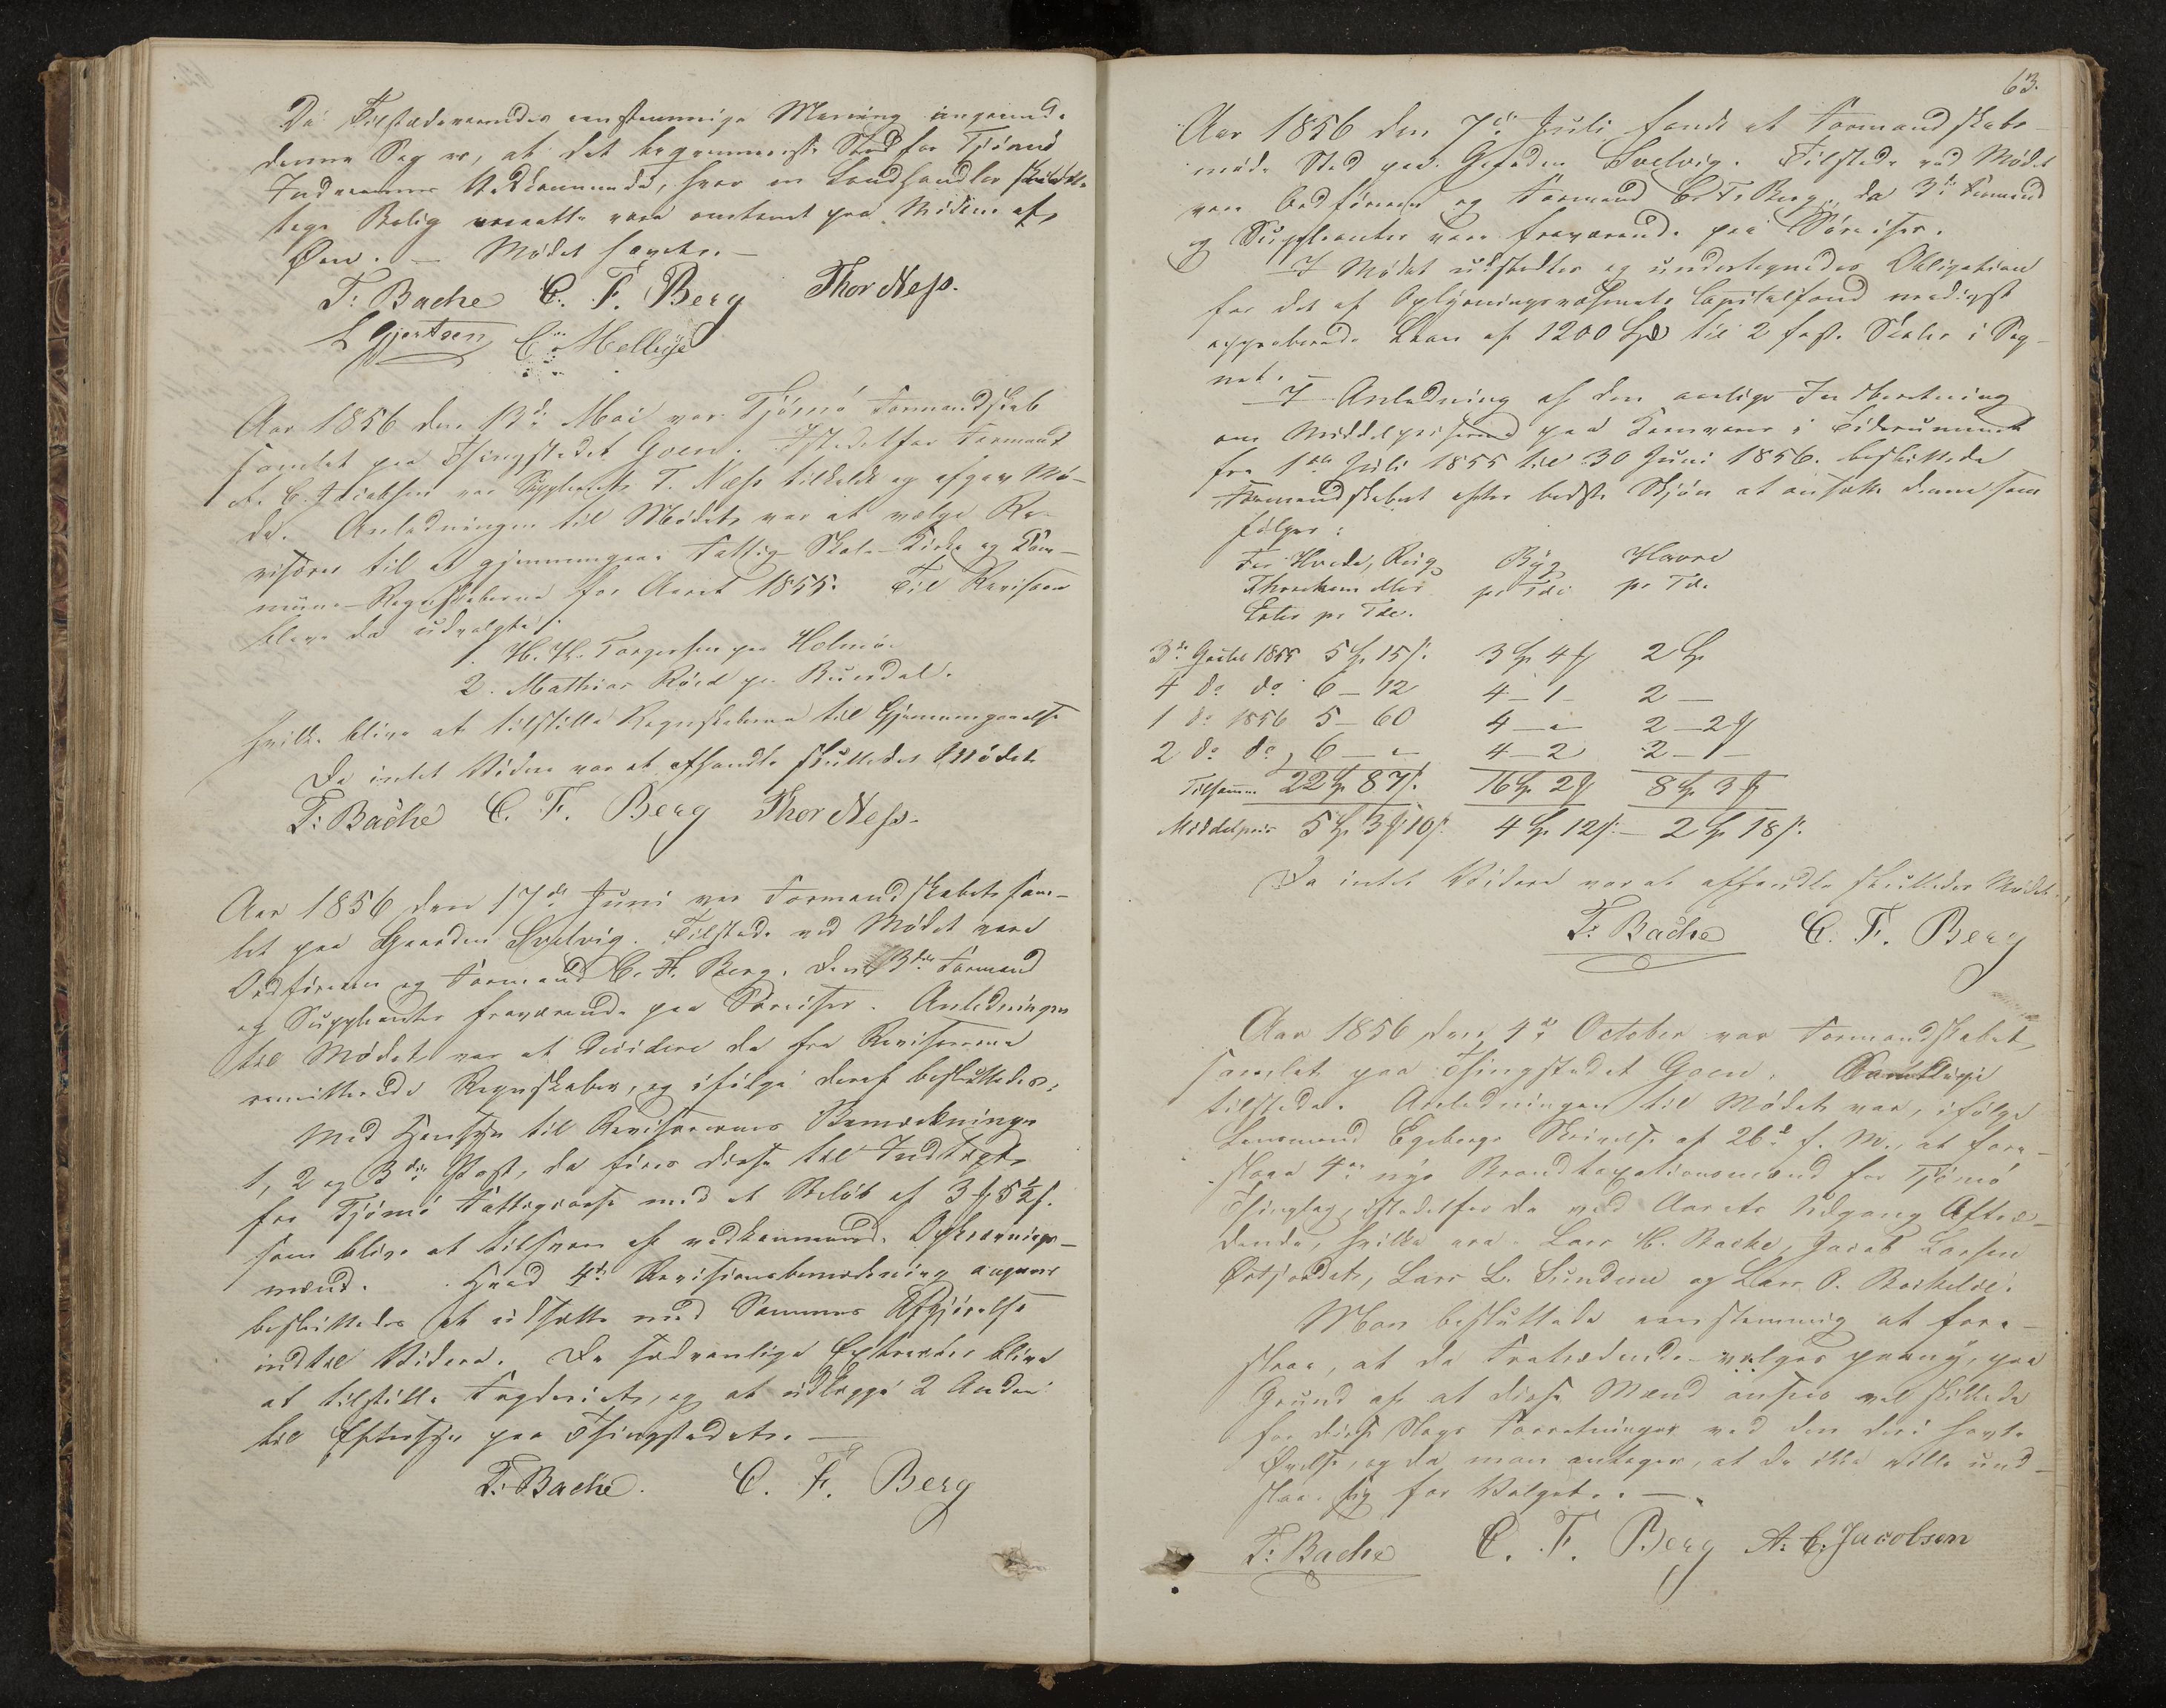 De Tilstædeværendes eenstemmige Mening angaaende
denne Sag er, at det beqvemmeste Sted for Tjömö
Indvaaneres Vedkommende, hvor en Landhandler skulde
tage Bolig maatte være omtrent paa Midten af
Øen. — Mødet hævet. —
T. Bache C. F. Berg Thor Ness.
L Gjertsen C. Mellbye
Aar 1856 den 13de Mai var Tjömö Formandskab
samlet paa Thingstedet Goen. Istedetfor Formand
A. C. Jacobsen var Suppleant T. Næss tilkaldt og afgav Mö-
de. Anledningen til Mödet var at vælge Re-
visorer til at gjennemgaae Fattig- Skole- Kirke og Com-
mune-Regnskaberne for Aaret 1855. Til Revisorer
bleve da udvalgte:
1. H. H. Torgersen paa Holmö.
2. Mathias Röed paa Buerdal.
hvilke blive at tilstille Regnskaberne til Gjennemgaaelse
Da intet Videre var at afhandle sluttedes Mödet
T. Bache C. F. Berg Thor Ness.
Aar 1856 den 17de Juni var Formandskabet sam-
let paa Gaarden Svelvig. Tilstede ved Mödet vare
Ordföreren og Formand C. F. Berg. Den 3die Formand
og Suppleanter fraværende paa Söreiser. Anledningen
til Mödet var at decidere de fra Revisorerne
remitterede Regnskaber, og ifölge deraf besluttedes:
Med Hensyn til Revisorernes Bemærkninger
1, 2 og 3die Post, da föres disse til Indtægt
for Tjömö Fattigcasse med et Belöb af 3 # 5½ s.
som blive at tilsvare af vedkommende Opkrævnings-
mænd. Hvad 4de Revisionsbemærkning angaaer
besluttedes at udsætte med Sammes Afgjörelse
indtil Videre. De sædvanlige Extracter blive
at tilstille Fogderiet, og at udlægge 2 Andre
til Eftersyn paa Thingstedet. —
T. Bache. C. F. Berg
63.
Aar 1856 den 7de Juli fandt et Formandskabs-
möde Sted paa Gaarden Svelvig. Tilstede ved Mödet
vare Ordföreren og Formand C. F. Berg, da 3die Formand
og Suppleanter vare fraværende paa Söreiser.
I Mödet udstedtes og undertegnedes Obligation
for det af Oplysningsvæsenets Capitalfond naadigst
approberede Laan af 1200 Spd til 2 faste Skoler i Sog-
net. —
I Anledning af den aarlige Indberetning
om Middelpriserne paa Kornvarer i Tidsrummet
fra 1ste Juli 1855 til 30 Juni 1856. besluttede
Formandskabet efter bedste Skjön at ansætte denne som
fölger:
For Hvede, Rug, Byg Havre
Erter pr Tde. pr Tde pr Tde
3de Qvartal 1855 5 Sp 15 s. 3 Sp 4 # 2 Sp
4 do do 6 — 12 4 — 1 — 2 —
1 do 1856 5 — 60 4 — „ — 2 — 2 #
2 do do, 6 — „ — 4 — 2 2 — 1 —
Tilsamm. 22 Sp 87 s. 16 Sp 2 # 8 Sp 3 #
Middelpris 5 Sp 3 # 10 s. 4 Sp 12 s. — 2 Sp 18 s.
Da intet Videre var at afhandle sluttedes Mödet.
T. Bache C. F. Berg
Aar 1856 den 4de October var Formandskabet
samlet paa Thingstedet Goen. Samtlige
tilstede. Anledningen til Mödet var, ifölge
Lensmand Egebergs Skrivelse af 26de f. M., at fore-
slaae 4re nye Brandtaxationsmænd for Tjömö
Thinglag, istedetfor de ved Aarets Udgang Aftræ-
dende, hvilke ere Lars H. Bache, Jacob Larsen
Østjordet, Lars L. Sundene og Lars O.
Man besluttede eenstemmig at fore-
slaae, at de Fratrædende vælges paany, paa
Grund af at disse Mænd ansees vel skikkede
for disse Slags Forretninger ved den deri havte
Øvelse, og da man antager, at de ikke ville und-
slaae sig for Valget. —
T. Bache C. F. Berg A. C. Jacobsen